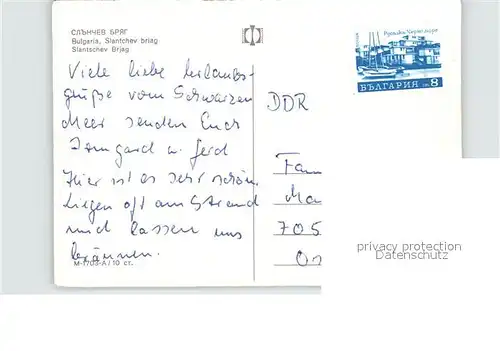 СЛЪНЧЕВ БРЯГ
Bulgaria, Slantchev briag
Slantschev Brjag
Viele liebe Urlaubs-
grüße vom Schwarzen
Meer senden Euch
Irmgard u. Gerd
Hier ist es sehr schön.
Liegen oft am Strand
und lassen uns
bräunen.
М-1703-А / 10 ст.
Русалка Черно море
БЪЛГАРИЯ ст. 8
DDR
Fam
Ma
705
privacy protection
Datenschutz